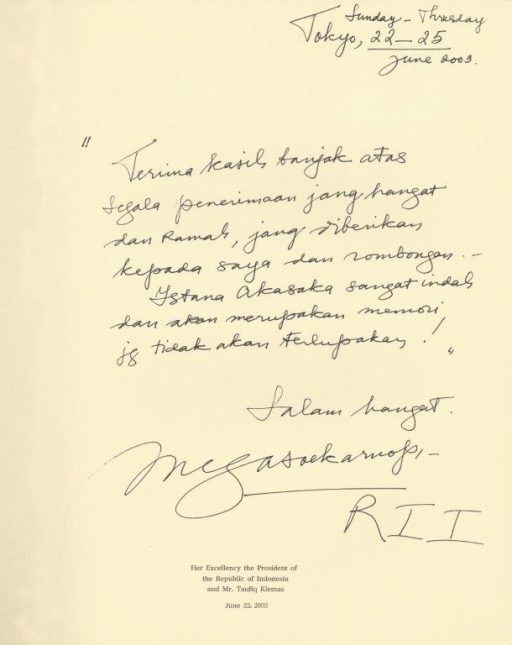 Sunday - Thursday
Tokyo, 22 — 25
June 2003.
"
Terima kasih banjak atas
segala penerimaan jang hangat
dan Ramah, jang diberikan
kepada saya dan rombongan. -
Istana Akasaka sangat indah
dan akan merupakan memori
jg tidak akan terlupakan. !
"
Salam hangat.
Megasoekarnofp, -
R I I
Her Excellency the President of
the Republic of Indonesia
and Mr. Taufiq Kiemas
June 22, 2003